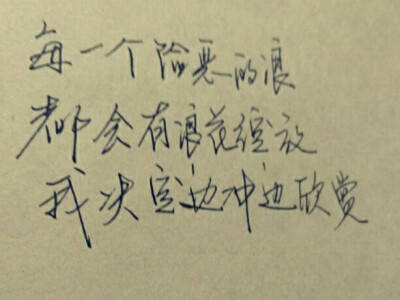 每一个险恶的浪
都会有浪花绽放
我决定边冲边欣赏